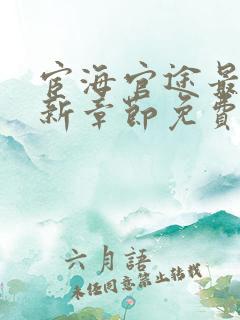 宦海官途最
新章節免費
六月語
未经同意禁止转载